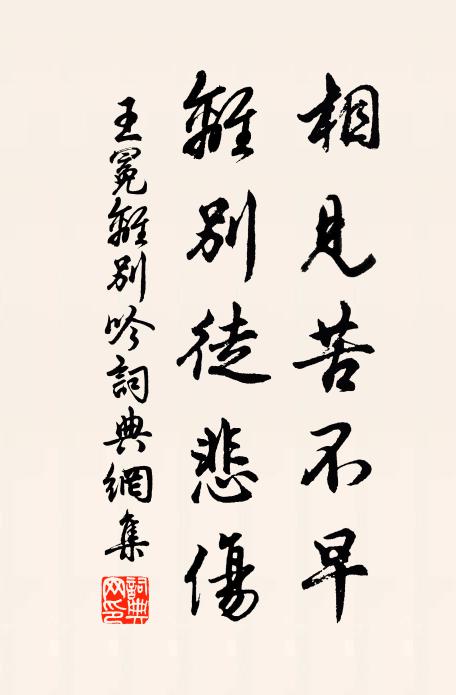 相見苦不早
離別徒悲傷
王冕離別吟詞典網集
詞典網印